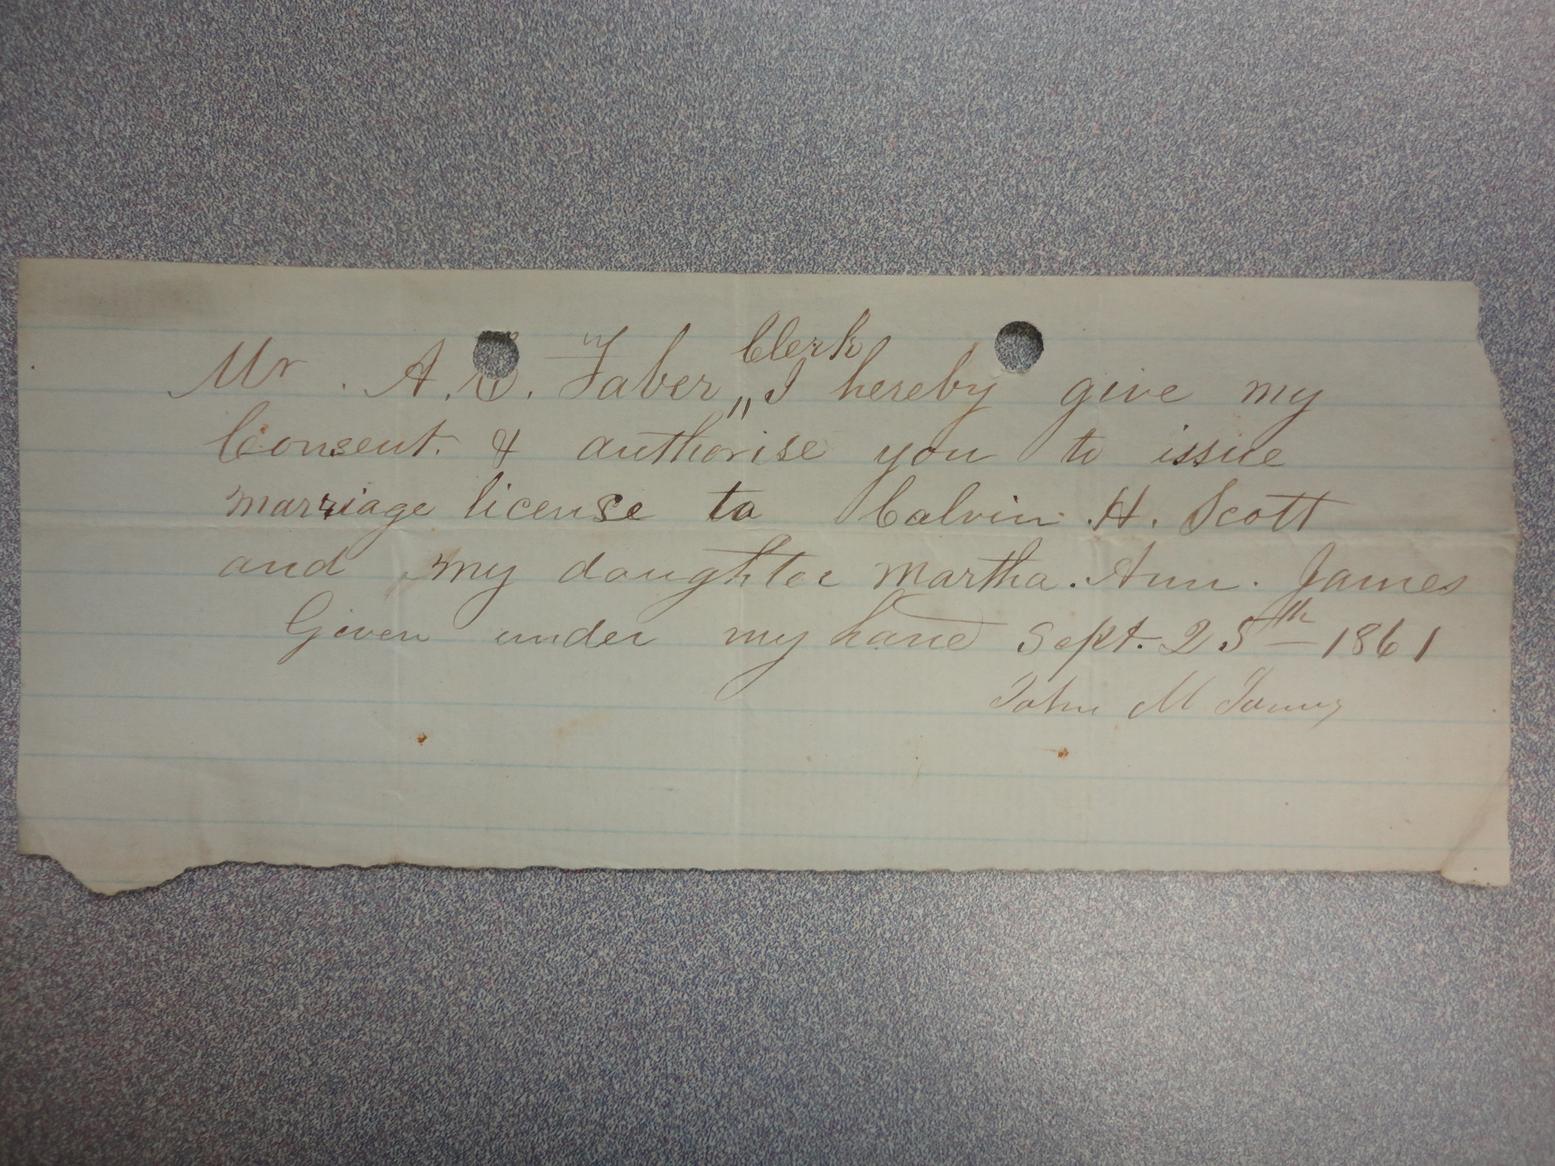 Mr. A. Faber Clerk „ I hereby give my
Consent. & authorise you to issue
marriage license to Calvin. H. Scott
and my daughter Martha. Ann. James
Given under my hand Sept. 25th 1861
John M James